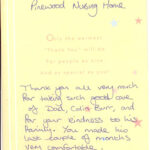 Pinewood Nursing Home
Only the warmest
"Thank You" will do
For people as nice
And as special as you!
Thank you all very much
for taking such good care
of Dad, Colin Burr, and
for your kindness to his
family. You made his
last couple of months
very comfortable.